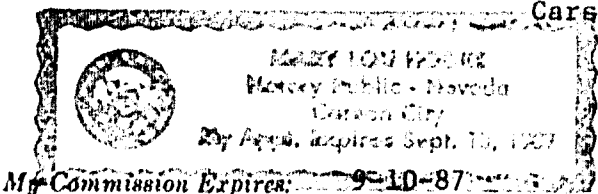 Cars
MARY LOU
Notary Public - Nevada
Carson City
My Appt. Expires Sept. 10, 1987
My Commission Expires: 9-10-87